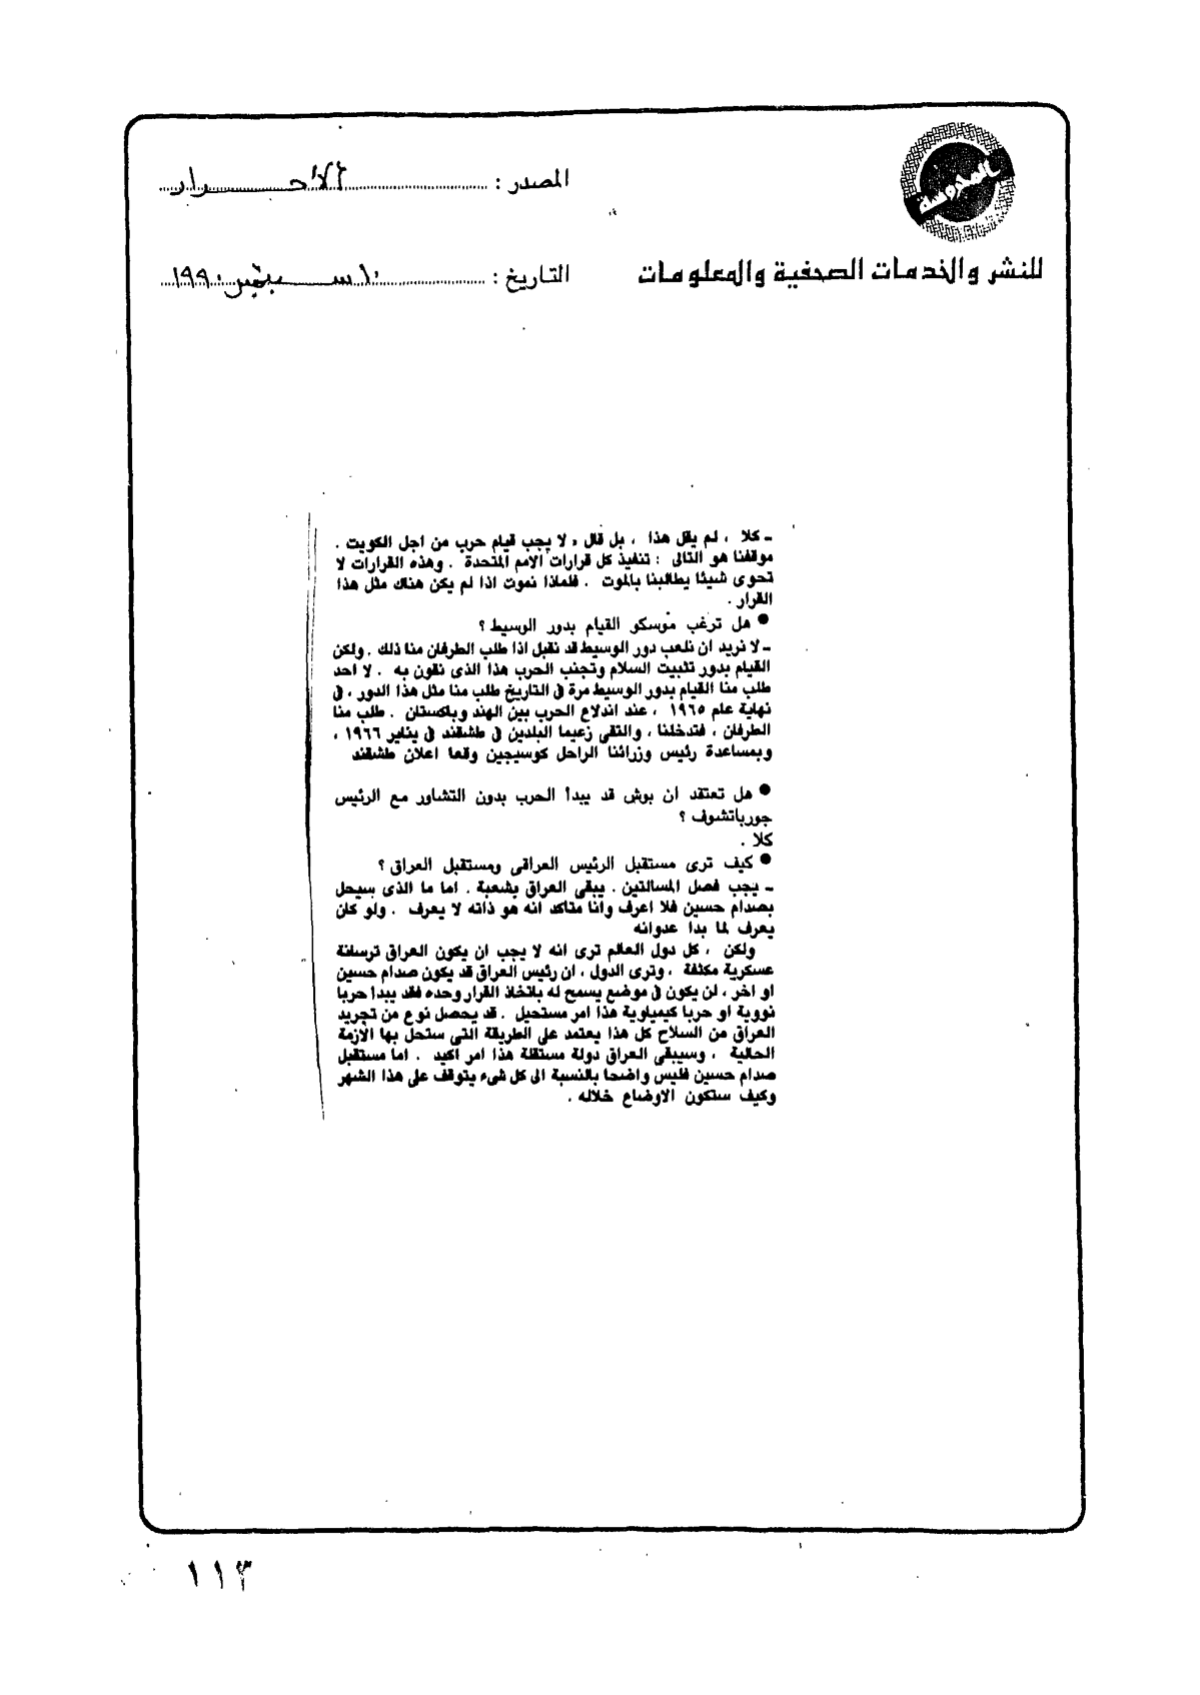 المحروسة
للنشر والخدمات الصحفية والمعلومات
المصدر : الأحرار
التاريخ : ١٠ سبتمبر ١٩٩٠
ـ كلا ، لم يقل هذا ، بل قال ، لا يجب قيام حرب من اجل الكويت .
موقفنا هو التالى : تنفيذ كل قرارات الامم المتحدة . وهذه القرارات لا
تحوى شيئا يطالبنا بالموت . فلماذا نموت اذا لم يكن هناك مثل هذا
القرار .
● هل ترغب موسكو القيام بدور الوسيط ؟
ـ لا نريد ان نلعب دور الوسيط قد نقبل اذا طلب الطرفان منا ذلك . ولكن
القيام بدور تثبيت السلام وتجنب الحرب هذا الذى نقون به . لا احد
طلب منا القيام بدور الوسيط مرة فى التاريخ طلب منا مثل هذا الدور ، فى
نهاية عام ١٩٦٥ ، عند اندلاع الحرب بين الهند وباكستان . طلب منا
الطرفان ، فتدخلنا ، والتقى زعيما البلدين فى طشقند فى يناير ١٩٦٦ ،
وبمساعدة رئيس وزرائنا الراحل كوسيجين وقعا اعلان طشقند
● هل تعتقد ان بوش قد يبدأ الحرب بدون التشاور مع الرئيس
جورباتشوف ؟
كلا .
● كيف ترى مستقبل الرئيس العراقى ومستقبل العراق ؟
ـ يجب فصل المسالتين . يبقى العراق بشعبة . اما ما الذى سيحل
بصدام حسين فلا اعرف وانا متاكد انه هو ذاته لا يعرف . ولو كان
يعرف لما بدا عدوانه
ولكن ، كل دول العالم ترى انه لا يجب ان يكون العراق ترسانة
عسكرية مكثفة ، وترى الدول ، ان رئيس العراق قد يكون صدام حسين
او اخر ، لن يكون فى موضع يسمح له باتخاذ القرار وحده فقد يبدا حربا
نووية او حربا كيمياوية هذا امر مستحيل . قد يحصل نوع من تجريد
العراق من السلاح كل هذا يعتمد على الطريقة التى ستحل بها الأزمة
الحالية ، وسيبقى العراق دولة مستقلة هذا امر اكيد . اما مستقبل
صدام حسين فليس واضحا بالنسبة الى كل شىء يتوقف على هذا الشهر
وكيف ستكون الاوضاع خلاله .
١١٣